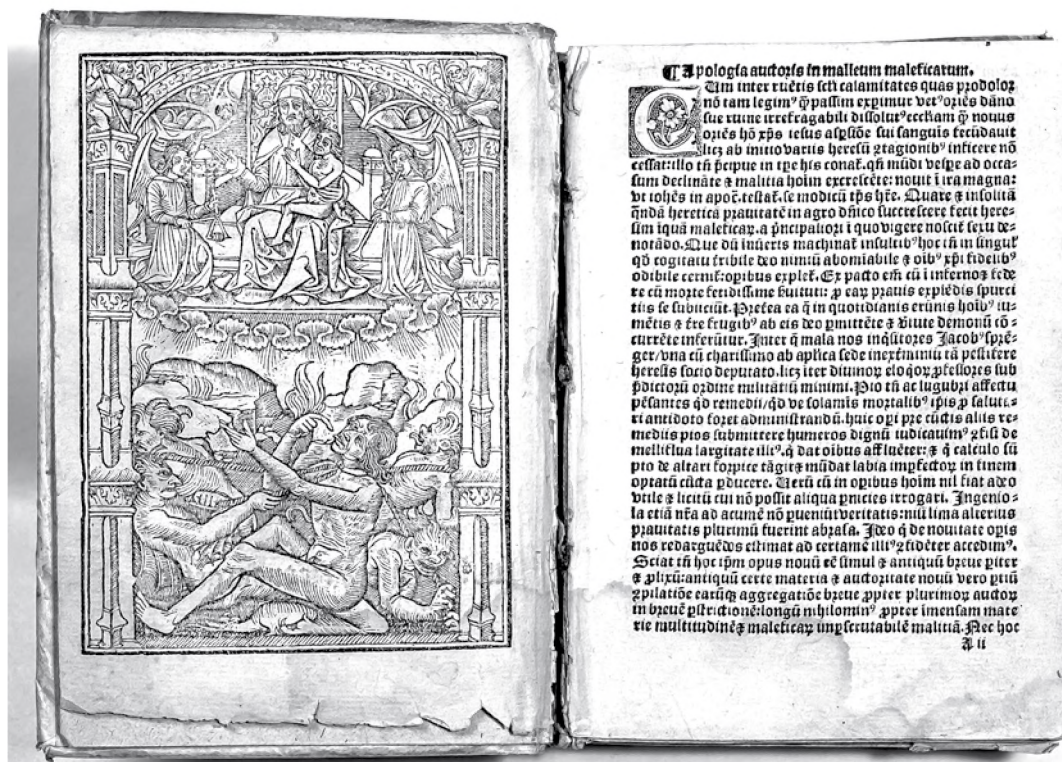 ¶Apologia auctoris in malleum maleficarum.
CUm inter ruētis scl̄i calamitates quas prodolor
nō tam legimꝰ q̄ꝫ passim exꝑimur vetꝰ oriēs dāno
sue ruine irrefragabili dissolutꝰ eccl̄iam q̄ꝫ nouus
oriēs hō xp̄s iesus aspsiōe sui sanguīs fecūdauit
licꝫ ab initio variis heresū ꝯtagionibꝰ inficere nō
cessat: illo tn̄ p̄cipue in tpe his conat̄. qn̄ mūdi vespe ad occa-
sum declināte ⁊ malitia hoīm excrescēte: nouit ī ira magna:
vt iohēs in apoc̄. testat̄. se modicū tp̄s hr̄e. Quare ⁊ insolitā
qn̄dā heretica prauitatē in agro dn̄ico succrescere fecit here-
sim īquā maleficaꝝ. a p̄ncipaliori ī quo vigere noscit̄ sexu de-
notādo. Que dū īnūeris machinat̄ insultibꝰ hoc tn̄ in singul̄
qd̄ cogitatu t̄ribile deo nimiū abomiabile ⁊ oībꝰ xp̄i fidelibꝰ
odibile cernit̄: oꝑibus explet̄. Ex pacto em̄ cū ī inferno ⁊ fede
re cū morte fetidissime ẜuituti: ꝓ eaꝝ prauis explēdis spurci
tiis se subiiciūt. Pret̄ea ea q̄ in quotidianis erūnis hoībꝰ iu-
mētis ⁊ t̄re frugibꝰ ab eis deo ꝑmittēte ⁊ v̄tute demonū cō-
currēte inferūtur. Inter q̄ mala nos inq̄sitores Jacobꝰ sprē-
ger / vna cū charissimo ab apl̄ica sede in exterminiū tā pestifere
heresis socio deputato. licꝫ īter diuinoꝝ eloqoꝝ ꝓfessores sub
p̄dictoꝝ ordine militātiū minimi. Pio tn̄ ac lugubri affectu
pēsantes qd̄ remedii / qd̄ ve solamīs mortalibꝰ ip̄is ꝓ saluti-
ri antidoto foret administrandū. huic oꝑi pre cūctis aliis re-
mediis pios submittere humeros dignū iudicauimꝰ ꝯfisi de
melliflua largitate illiꝰ. q̄ dat oībus affluēter: ⁊ q̄ calculo sū
pto de altari forpice tāgit ⁊ mūdat labia imꝑfectoꝝ in finem
optatū cūcta ꝑducere. Verū cū in oꝑibus hoīm nil fiat adeo
vtile ⁊ licitū cui nō possit aliqua ꝑnicies irrogari. Ingenio-
la etiā nr̄a ad acumē nō ꝑueniūt veritatis: nisi lima alterius
prauitatis plurimū fuerint abrasa. Ideo q̄ de nouitate oꝑis
nos redarguēdos estimat ad certamē illiꝰ ꝯfidēter accedimꝰ.
Sciat tn̄ hoc ip̄m opus nouū eē simul ⁊ antiquū breue ꝑiter
⁊ ꝓlixū: antiquū certe materia ⁊ auctoritate nouū vero ꝑtiū
ꝯpilatiōe earūqꝫ aggregatiōe breue ꝓpter plurimoꝝ auctoꝝ
in breuē ꝑstrictionē: longū nihilominꝰ ꝓpter īmensam mate
rie multitudinē ⁊ maleficaꝝ imꝑscrutabilē malitiā. Nec hoc
A ii